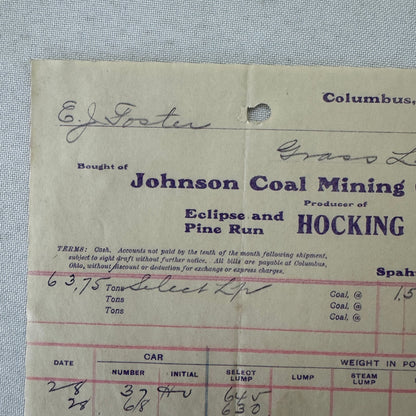 Columbus,
E. J. Foster
Grass L
Bought of
Johnson Coal Mining
Producer of
Eclipse and
Pine Run HOCKING
TERMS: Cash. Accounts not paid by the tenth of the month following shipment,
subject to sight draft without further notice. All bills are payable at Columbus,
Ohio, without discount or deduction for exchange or express charges.
Spah
63,75 Tons Select Lp Coal, @ 1,5
Tons Coal, @
Tons Coal, @
DATE CAR WEIGHT IN PO
NUMBER INITIAL SELECT LUMP LUMP STEAM LUMP
28 37 HV 645
28 68 630